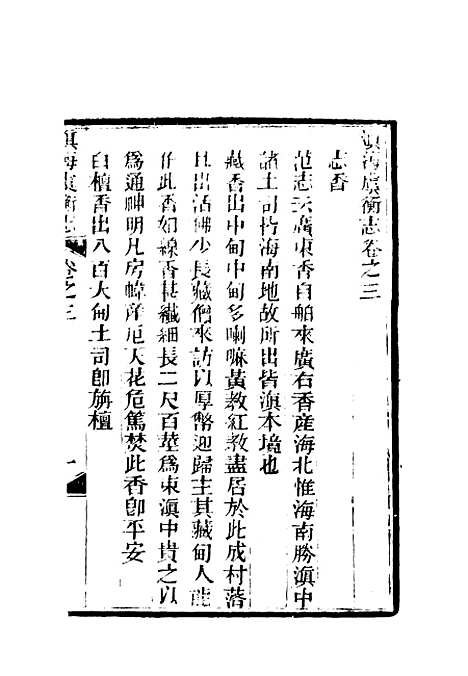 滇海虞衡志卷之三
志香
范志云廣東香自舶來廣右香產海北惟海南勝滇中
諸土司皆海南地故所出皆滇本境也
藏香出中甸中甸多喇嘛黃教紅教盡居於此成村落
且出活佛少長藏僧來訪以厚幣迎歸主其藏甸人能
作此香如線香甚纖細長二尺百莖為束滇中貴之以
為通神明凡房幃產厄天花危篤焚此香卽平安
白檀香出八百大甸土司卽旃檀
滇海虞衡志 卷之三 一